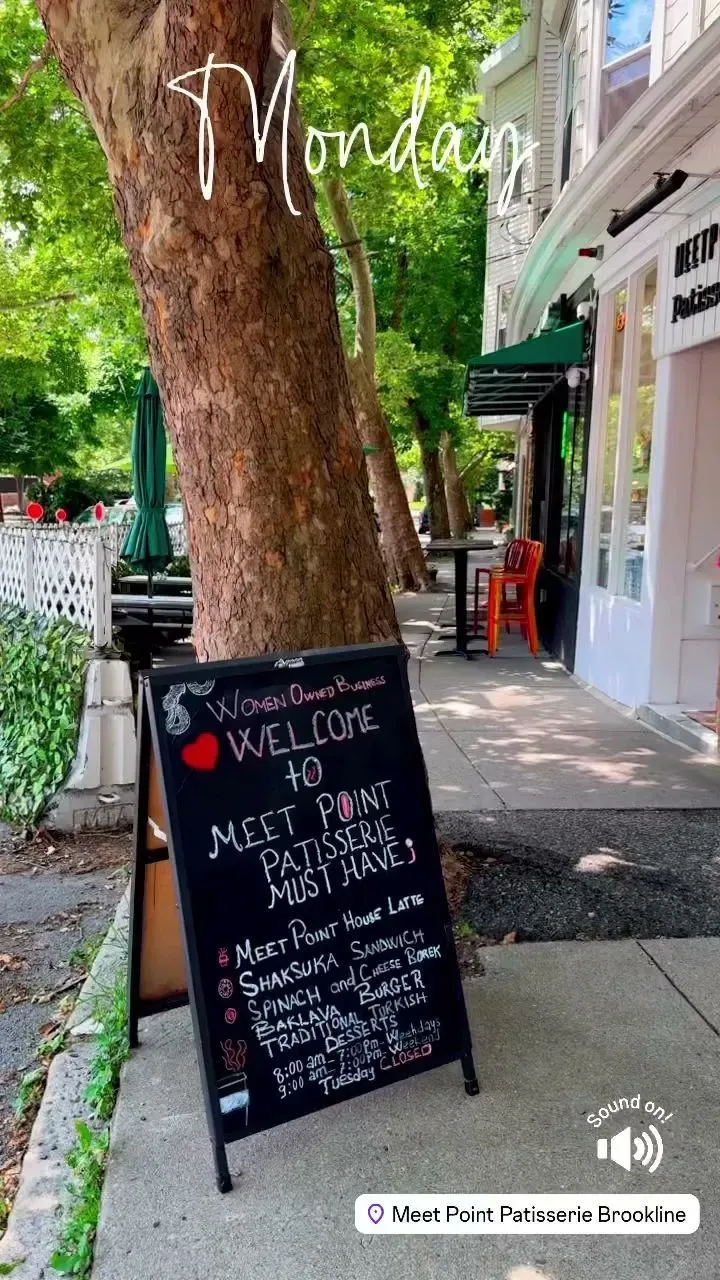 Monday
MEETP
Patiss
WOMEN OWNED BUSINESS
WELCOME
to
MEET POINT
PATISSERIE
MUST HAVE;
MEET POINT HOUSE LATTE
SHAKSUKA SANDWICH
SPINACH and CHEESE BOREK
BAKLAVA BURGER
TRADITIONAL TURKISH
DESSERTS
8:00 am-7:00pm-Weekdays
9:00 am-7:00pm-Weekend
Tuesday CLOSED
Sound on!
Meet Point Patisserie Brookline